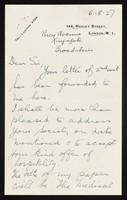 6-8-57
146, HARLEY STREET,
LONDON, W.1.
Dear Sir
Your letter of 2nd inst
has been forwarded to
me here.
I shall be more than
pleased to address
your Society on date
mentioned & to accept
your kind offer of
hospitality.
The title of my paper
will be the Medical